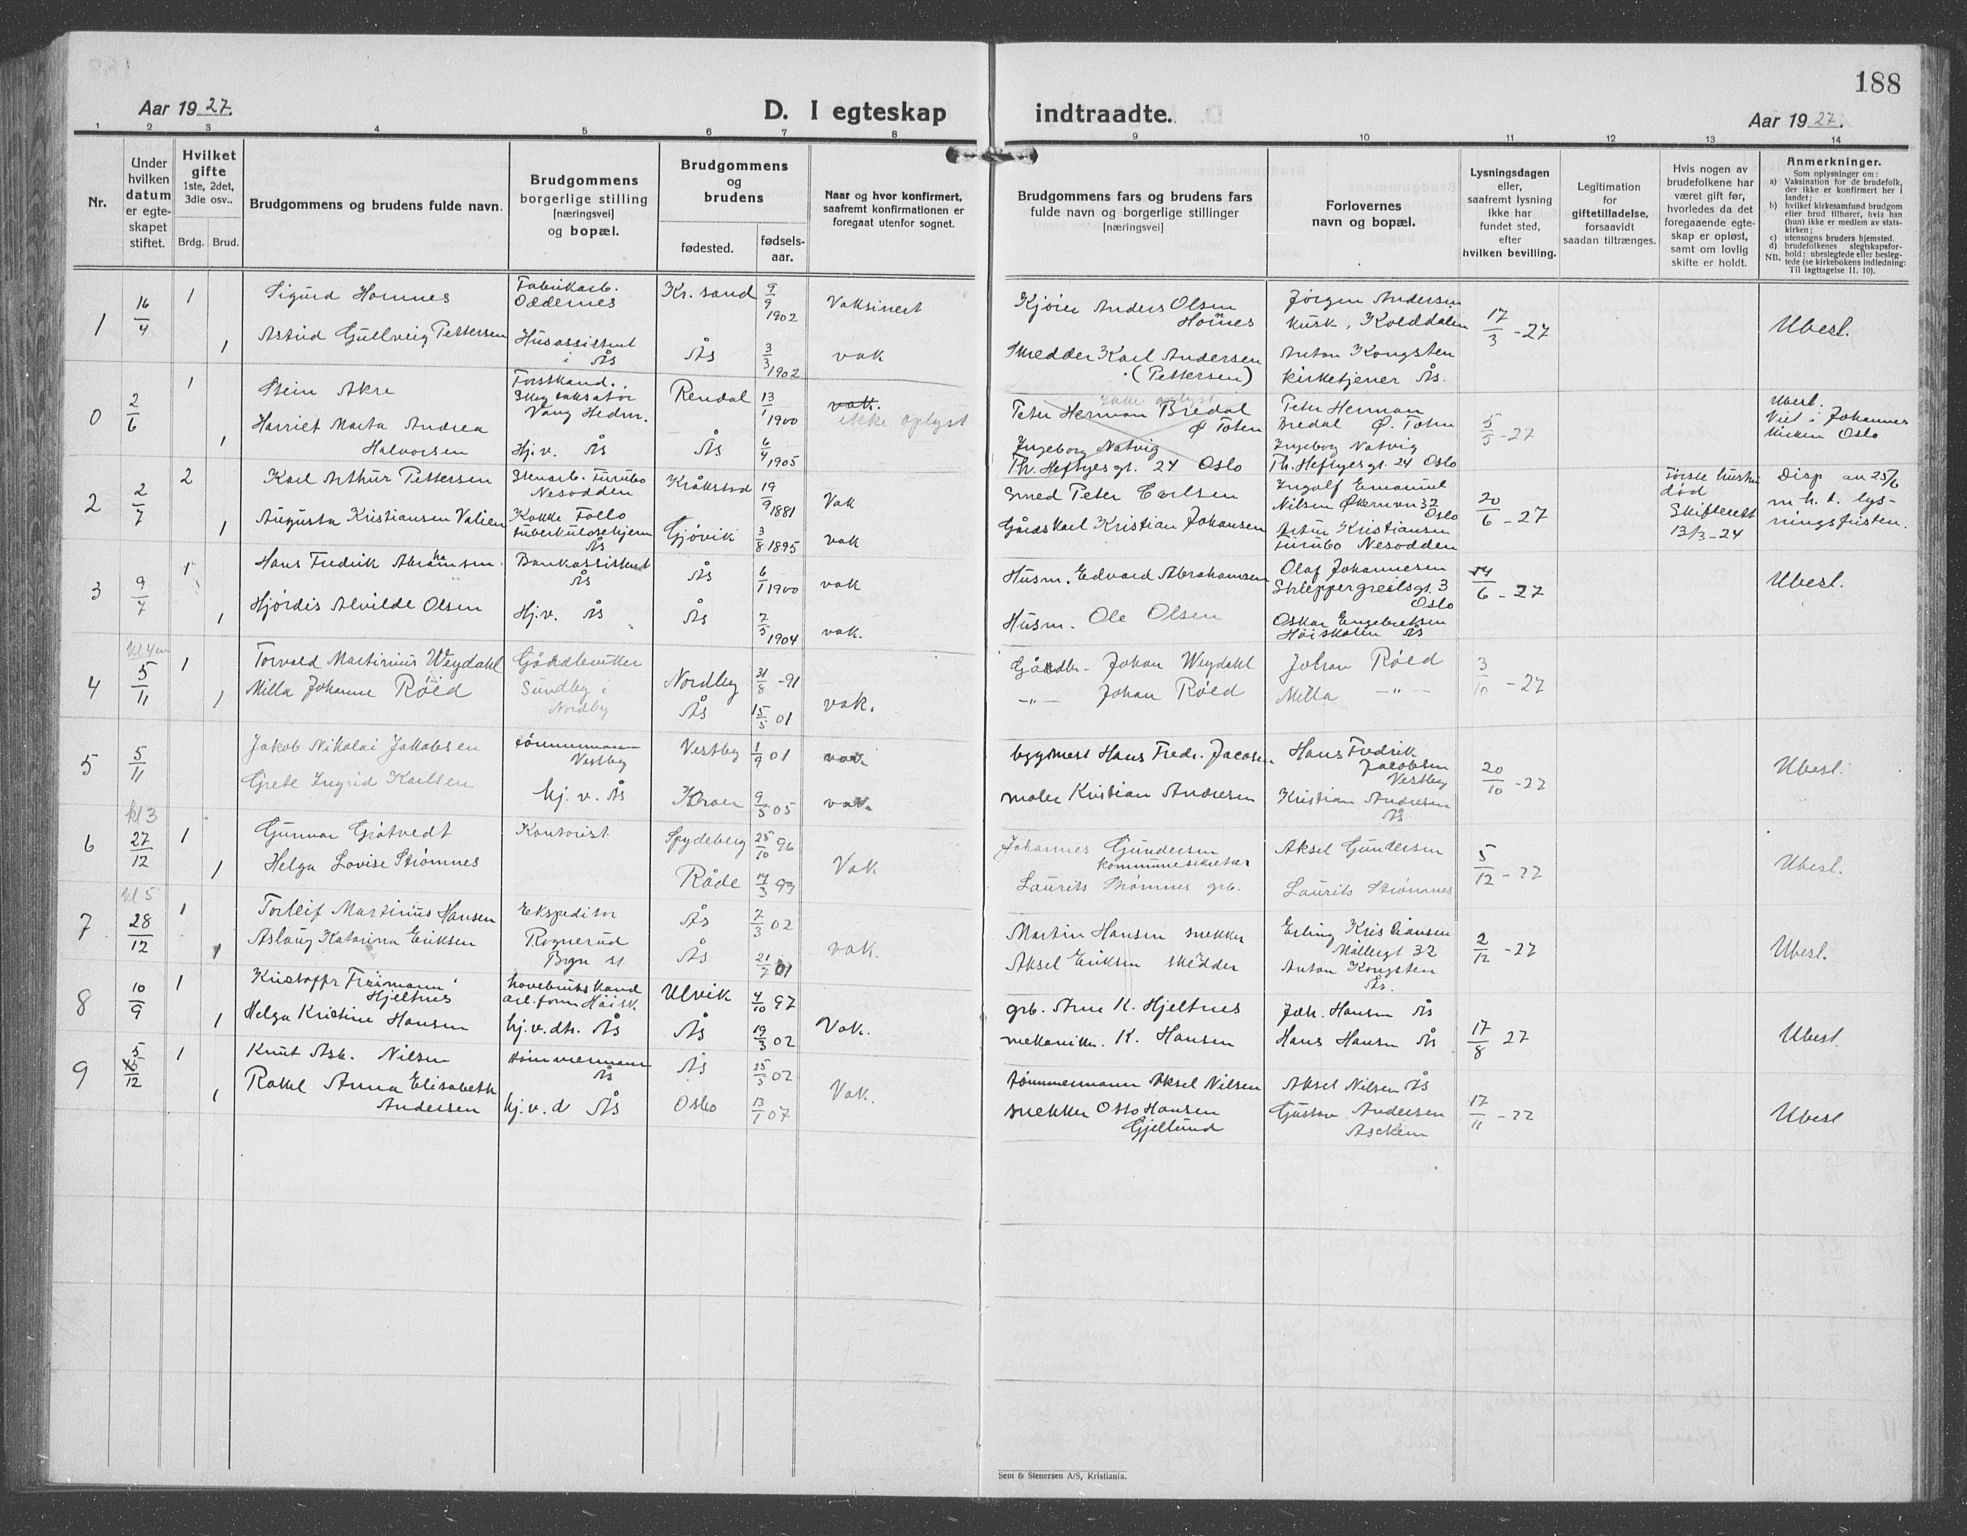 188
Aar 1927.
D. I egteskap
indtraadte.
Aar 1927.
1 2 3 4 5 6 7 8
9 10 11 12 13 14
Nr.
Under hvilken datum er egteskapet stiftet.
Hvilket gifte
1ste, 2det, 3die osv..
Brdg. Brud.
Brudgommens og brudens fulde navn.
Brudgommens borgerlige stilling [næringsvei] og bopæl.
Brudgommens og brudens
fødested.
fødsels-aar.
Naar og hvor konfirmert, saafremt konfirmationen er foregaat utenfor sognet.
Brudgommens fars og brudens fars fulde navn og borgerlige stillinger [næringsvei]
Forlovernes navn og bopæl.
Lysningsdagen eller, saafremt lysning ikke har fundet sted, efter hvilken bevilling.
Legitimation for giftetilladelse, forsaavidt saadan tiltrænges.
Hvis nogen av brudefolkene har været gift før, hvorledes da det foregaaende egteskap er opløst, samt om lovlig skifte er holdt.
Anmerkninger.
Som oplysninger om:
a) Vaksination for de brudefolk, der ikke er konfirmert her i landet;
b) hvilket kirkesamfund brudgom eller brud tilhører, hvis han (hun) ikke er medlem av statskirken;
c) utensogns bruders hjemsted.
d) brudefolkenes slegtskapsforhold: ubeslegtede eller beslegtede (se kirkebokens indledning:
NB. Til iagttagelse II. 10).
1 16/4 1 Sigurd Homnes Fabrikarb. Oddernes Kr. sand 9/9 1902 Vaksinert Kjører Anders Olsen Homnes Jørgen Andersen Kusk, Kolddalen 17/3-27 Ubesl.
1 Astrid Gullveig Pettersen Husassistent i Ås Ås 3/3 1902 vak Skredder Karl Andersen (Pettersen) Anton Kongsten kirketjener Ås.
0 2/6 1 Stein Akre Forstkand. Skogtaksatør Vang Hedm. Rendal 13/1 1900 vak. ikke oplyst Ikke oplyst Peter Herman Bredal Ø Toten Peter Herman Bredal Ø. Toten 5/5-27 Ubesl. Viet i Johannes Kirken Oslo
1 Harriet Marta Andrea Halvorsen Hj.v. Ås Ås 6/4 1905 Ingeborg Natvig Th. Heftyes gt. 24 Oslo Ingeborg Natvig Th. Heftyes gt. 24 Oslo
2 2/7 2 Karl Arthur Pettersen Stenarb. Furubo Nesodden Kråkstad 19/9 1881 Vak Smed Peter Carlsen Ingolf Emanuel Nilsen Økernvn 32 Oslo 20/6-27 Første hustru død Skifterett 13/3-24 Disp av 25/6 m. h. t. lysningsfristen.
1 Augusta Kristiansen Valien Kokke Follo tuberkulosehjem Ås Gjøvik 3/8 1895 vak Gårdskarl Kristian Johansen Kristiansen Furubo Nesodden
3 9/7 1 Hans Fredrik Abrahamsen Bankassistent Ås Ås 6/1 1900 vak Husm. Edvard Abrahamsen Olaf Johannesen Schleppegrellsgt. 3 Oslo /6-27 Ubesl.
1 Hjørdis Alvilde Olsen Hj.v. Ås Ås 7/5 1904 vak. Husm. Ole Olsen Oskar Engebretsen Høiskolen Ås
4 kl 4 em 5/11 1 Torvald Martinius Weydahl Gårdbruker Sundby i Nordby Nordby 31/8-91 Gårdbr. Johan Weydahl Johan Røed 3/10-27
1 Milla Johanne Røed Ås 15/5 01 vak. -"- Johan Røed Milla -"-
5 5/11 Jakob Nikolai Jakobsen tømmermann Vestby Vestby 1/9 01 vak bygmest Hans Fredr. Jacobsen Hans Fredrik Jacobsen Vestby 20/10-27 Ubesl.
Grete Ingrid Karlsen hj. v. Ås Kroer 9/5 05 vak. maler Kristian Andresen Kristian Andresen Ås
6 kl 3 27/12 1 Gunnar Grøtvedt Kontorist Spydeberg 25/10 96 Johannes Gundersen kommunesekretær Aksel Gundersen 5/12-27 Ubesl.
1 Helga Lovise Strømnes Råde 14/3 99 Vak Laurits Strømnes grb. Laurits Strømnes
7 kl 5 28/12 1 Torleif Martinius Hansen Ekspeditør Rognerud Bryn st Ås 7/3 02 Martin Hansen snekker Erling Kristiansen Møllergt 32 2/12-27 Ubesl.
1 Aslaug Katarina Eriksen Ås 21/7 01 vak. Aksel Eriksen skredder Anton Kongsten Ås.
8 10/9 1 Kristoffer Freimann Hjeltnes havebrukskand Ulvik 4/10 97 grb. Arne K. Hjeltnes Joh. Hansen Ås 17/8 27 Ubesl
1 Helga Kristine Hansen hj.v.dtr. Ås Ås 19/3 02 Vak. mekanikr. K. Hansen Hans Hansen Ås
9 5/12 1 Knut Ask. Nilsen tømmermann Ås Ås 25/5 02 tømmermann Aksel Nilsen Aksel Nilsen Ås 17/11-27 Ubesl
1 Rakel Anna Elisabeth Andersen hj.v.d Ås Oslo 13/1 07 Vak. snekker Otto Hansen Gjellund Gustav Andersen Askem
Sem & Stenersen A/S, Kristiania.